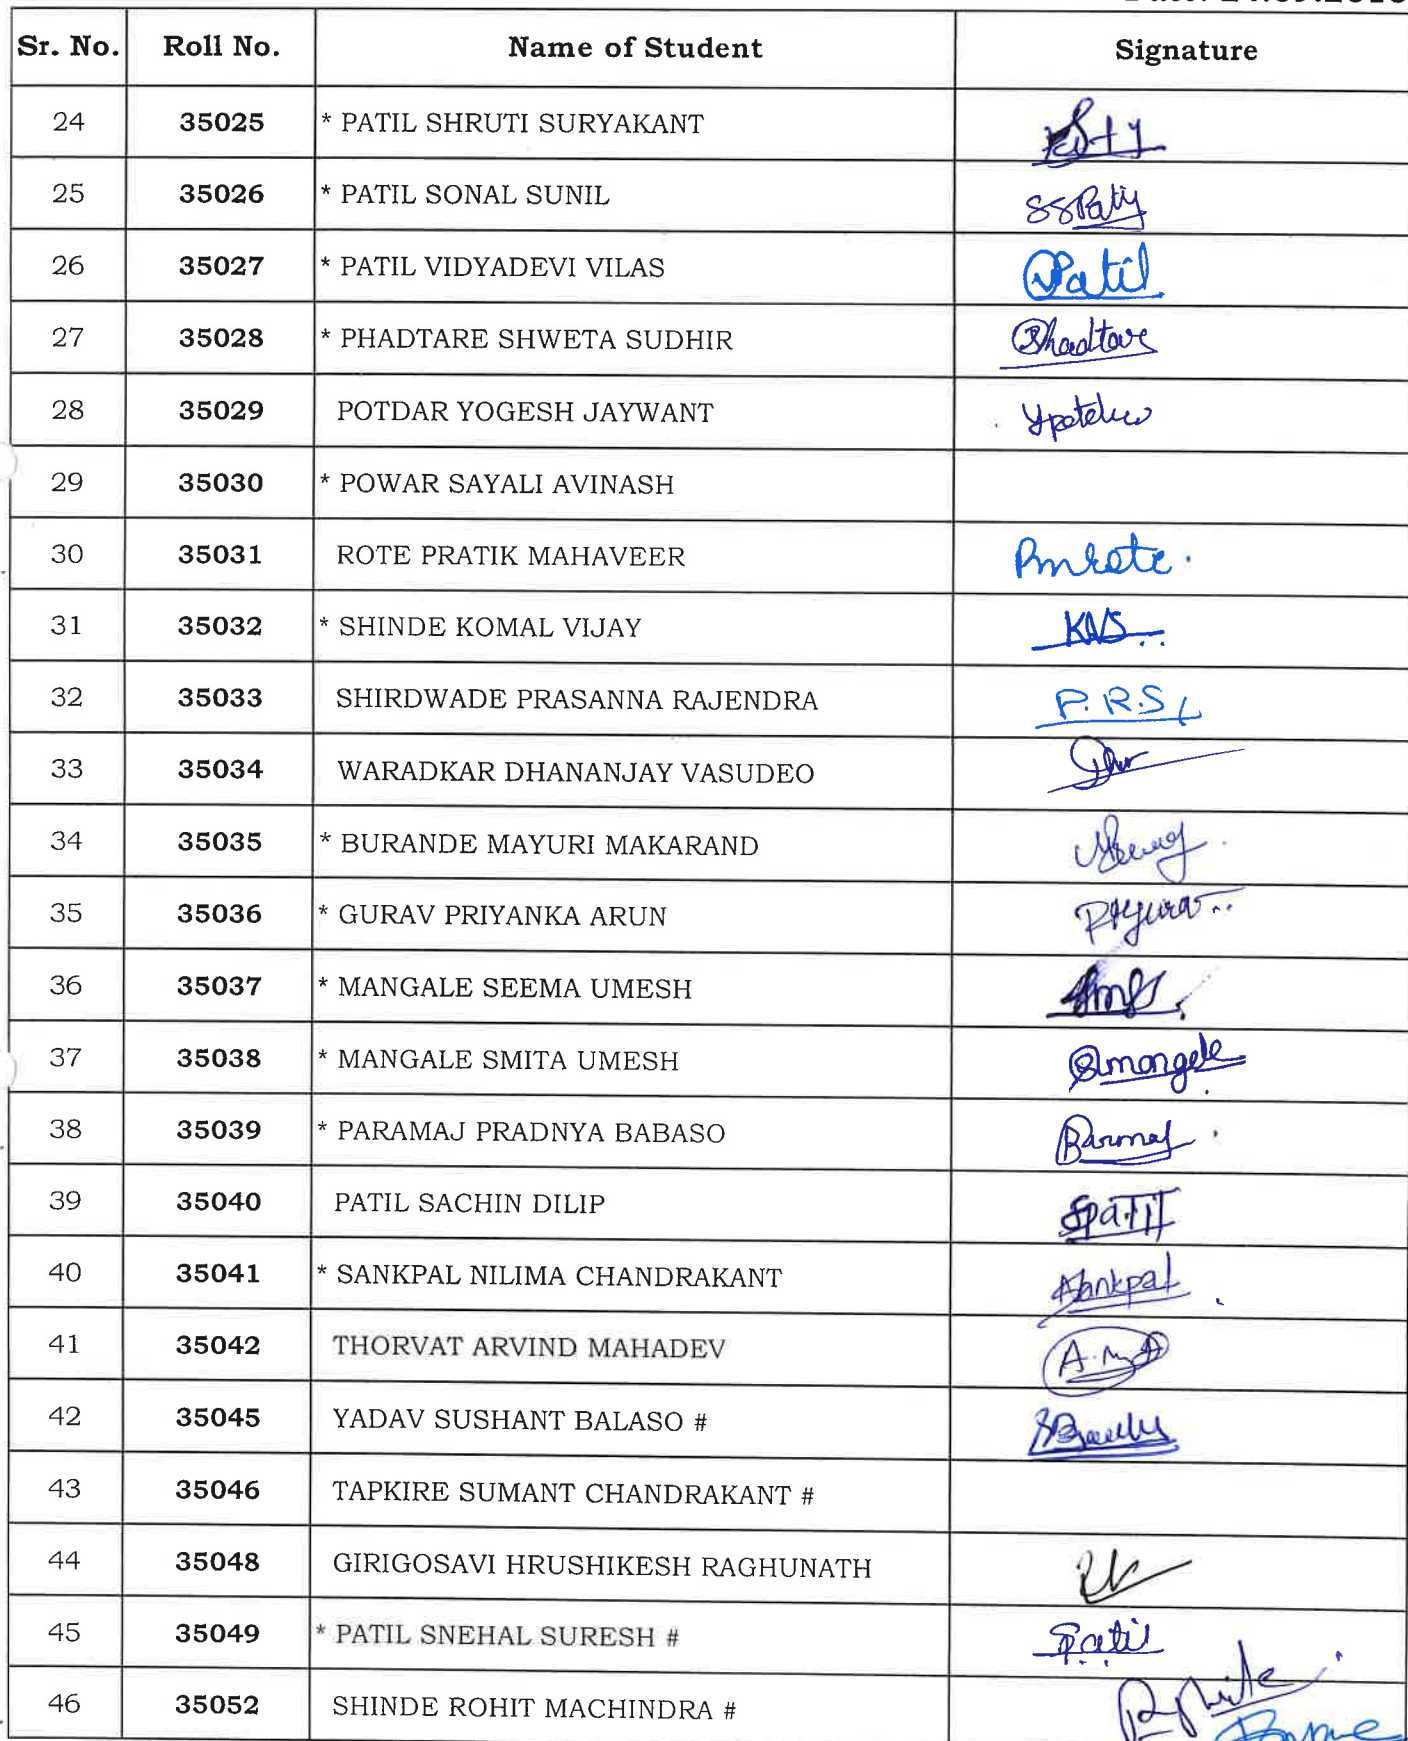 Sr. No. Roll No. Name of Student Signature
24 35025 * PATIL SHRUTI SURYAKANT
25 35026 * PATIL SONAL SUNIL
26 35027 * PATIL VIDYADEVI VILAS Patil
27 35028 * PHADTARE SHWETA SUDHIR Phadtare
28 35029 POTDAR YOGESH JAYWANT
29 35030 * POWAR SAYALI AVINASH
30 35031 ROTE PRATIK MAHAVEER Pmrote.
31 35032 * SHINDE KOMAL VIJAY KVS
32 35033 SHIRDWADE PRASANNA RAJENDRA P.R.S
33 35034 WARADKAR DHANANJAY VASUDEO
34 35035 * BURANDE MAYURI MAKARAND
35 35036 * GURAV PRIYANKA ARUN
36 35037 * MANGALE SEEMA UMESH
37 35038 * MANGALE SMITA UMESH Smangale
38 35039 * PARAMAJ PRADNYA BABASO
39 35040 PATIL SACHIN DILIP SPATIL
40 35041 * SANKPAL NILIMA CHANDRAKANT Sankpal
41 35042 THORVAT ARVIND MAHADEV
42 35045 YADAV SUSHANT BALASO #
43 35046 TAPKIRE SUMANT CHANDRAKANT #
44 35048 GIRIGOSAVI HRUSHIKESH RAGHUNATH
45 35049 * PATIL SNEHAL SURESH # SPatil
46 35052 SHINDE ROHIT MACHINDRA #